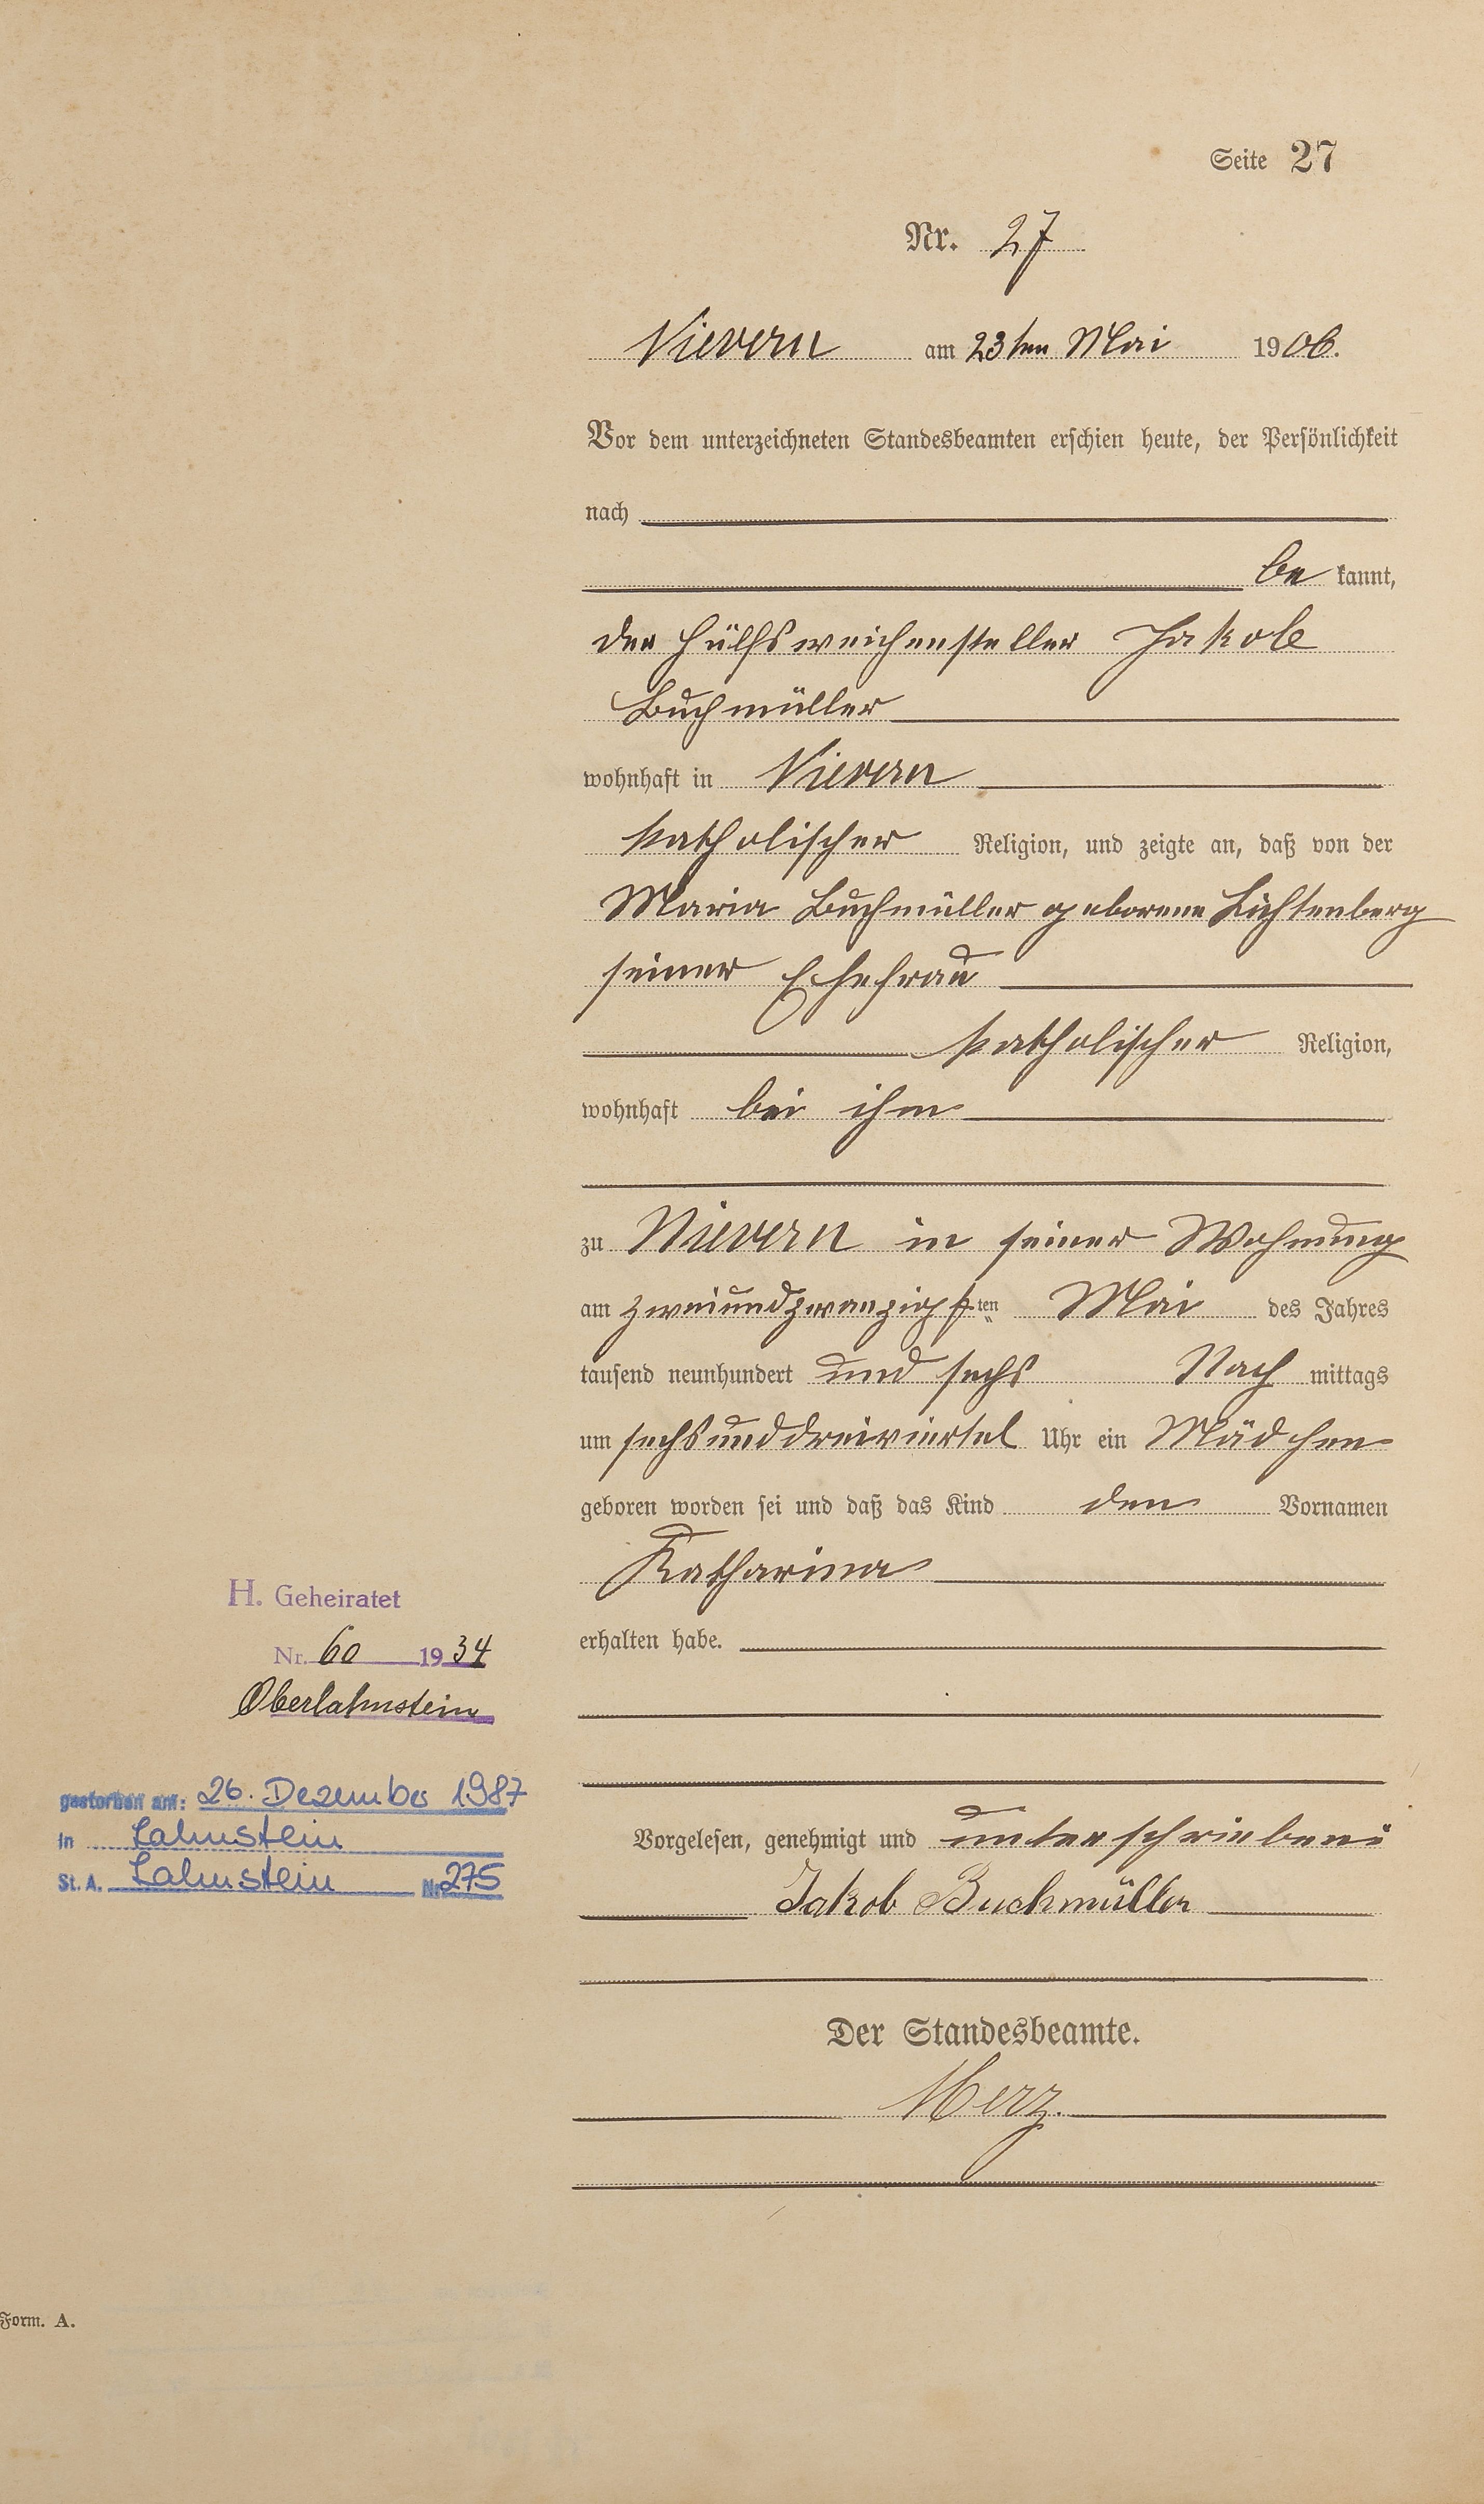 Seite 27
Nr. 27
Nievern am 23ten Mai 1906.
Vor dem unterzeichneten Standesbeamten erschien heute, der Persönlichkeit
nach
be kannt,
der Hülfsweichensteller Jakob
Buchmüller
wohnhaft in Nievern
katholischer Religion, und zeigte an, daß von der
Maria Buchmüller geborene Lichtenberg
seiner Ehefrau
katholischer Religion,
wohnhaft bei ihm
zu Nievern in seiner Wohnung
am zweiundzwanzigsten Mai des Jahres
tausend neunhundert und sechs Nach mittags
um sechsunddreiviertel Uhr ein Mädchen
geboren worden sei und daß das Kind den Vornamen
Katharina
erhalten habe.
H. Geheiratet
Nr. 60 1934
Oberlahnstein
gestorben am: 26. Dezember 1987
in Lahnstein
St. A. Lahnstein Nr. 275
Vorgelesen, genehmigt und unterschrieben:
Jakob Buchmüller
Der Standesbeamte.
Merz.
Form. A.